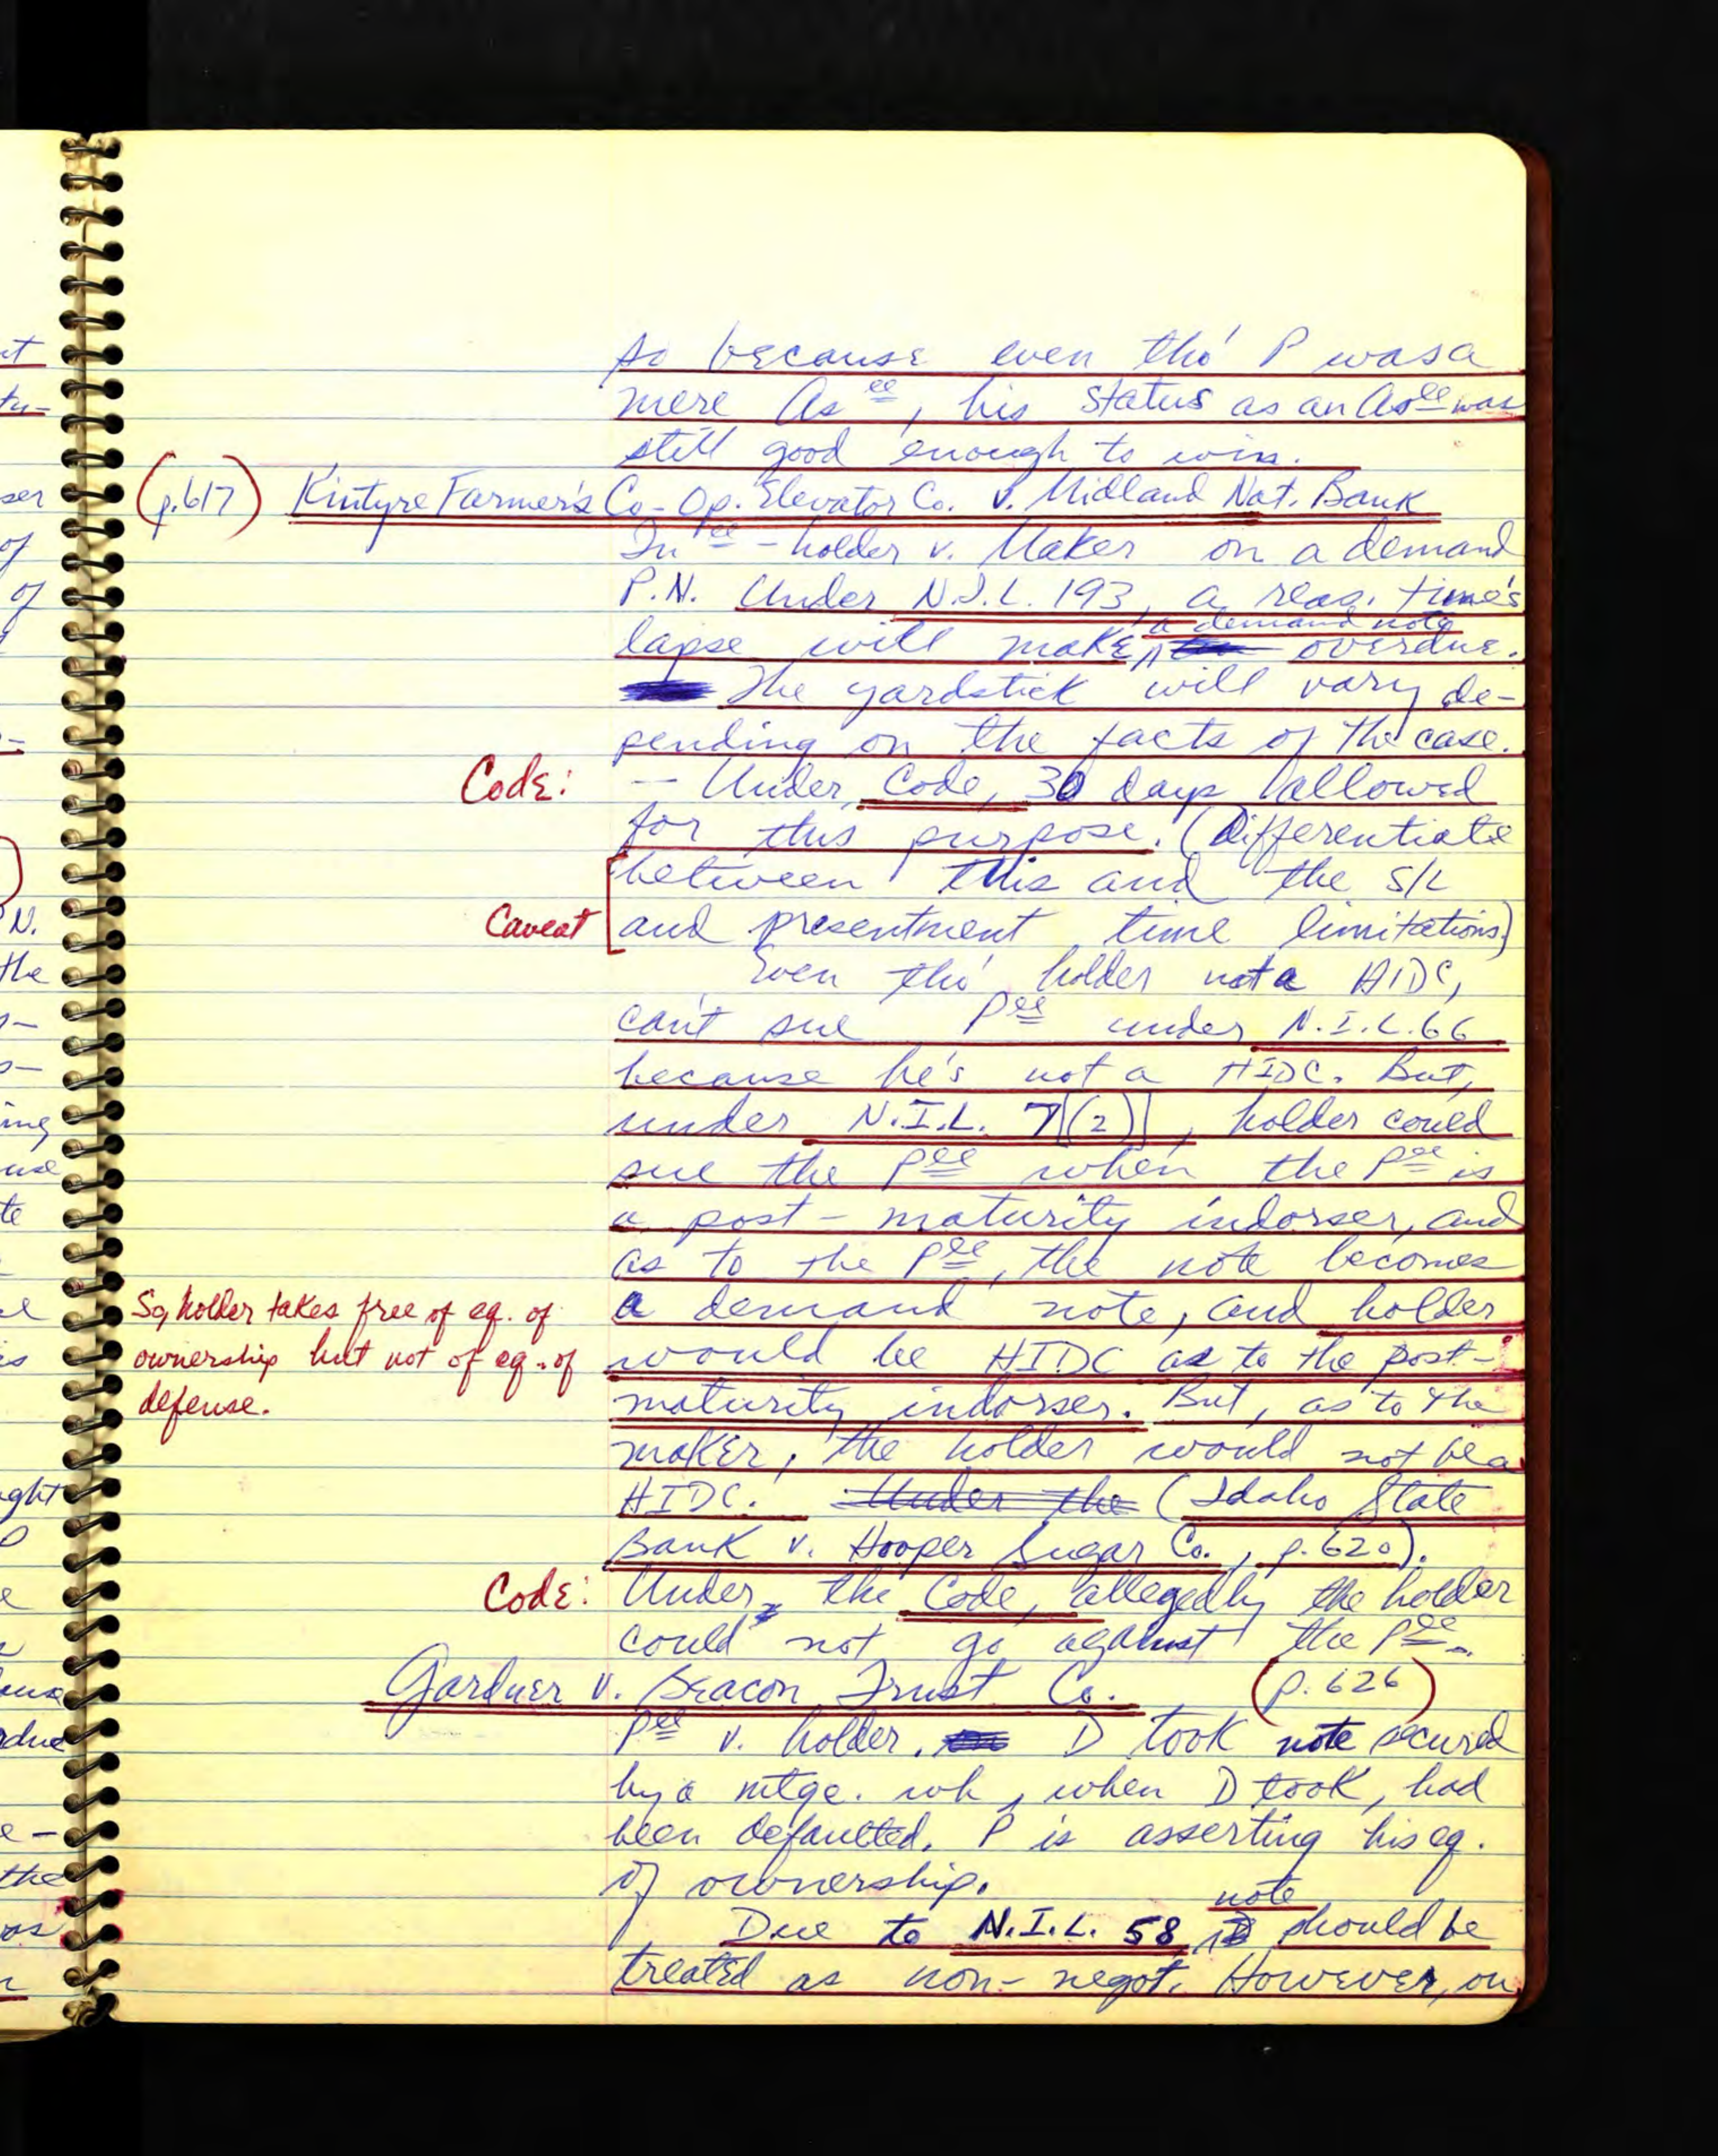 so because even tho' P was a
mere As ee, his status as an As ee was
still good enough to win.
(p.617) Kintyre Farmer's Co-Op. Elevator Co. v. Midland Nat. Bank
In ee - holder v. Maker on a demand
P.N. Under N.I.L. 193, a reas. time's
a demand note
lapse will make overdue.
The yardstick will vary de-
pending on the facts of the case.
Code: -- Under Code, 30 days allowed
for this purpose. (Differentiate
between this and the S/L
Caveat and presentment time limitations)
Even tho' holder not a HIDC,
can't sue Pee under N.I.L. 66
because he's not a HIDC. But,
under N.I.L. 7[(2)], holder could
sue the Pee when the Pee is
a post-maturity indorser, and
as to the Pee, the note becomes
So, holder takes free of eq. of
ownership but not of eq. of
defense.
a demand note, and holder
would be HIDC as to the post-
maturity indorser. But, as to the
maker, the holder would not be a
HIDC. Under the (Idaho State
Bank v. Hooper Sugar Co., p.620).
Code: Under the Code, allegedly the holder
could not go against the Pee.
Gardner v. Beacon Trust Co. (p. 626)
Pee v. holder. D took note secured
by a mtge. wh, when D took, had
been defaulted. P is asserting his eq.
of ownership.
note
Due to N.I.L. 58, should be
treated as non-negot. However, on